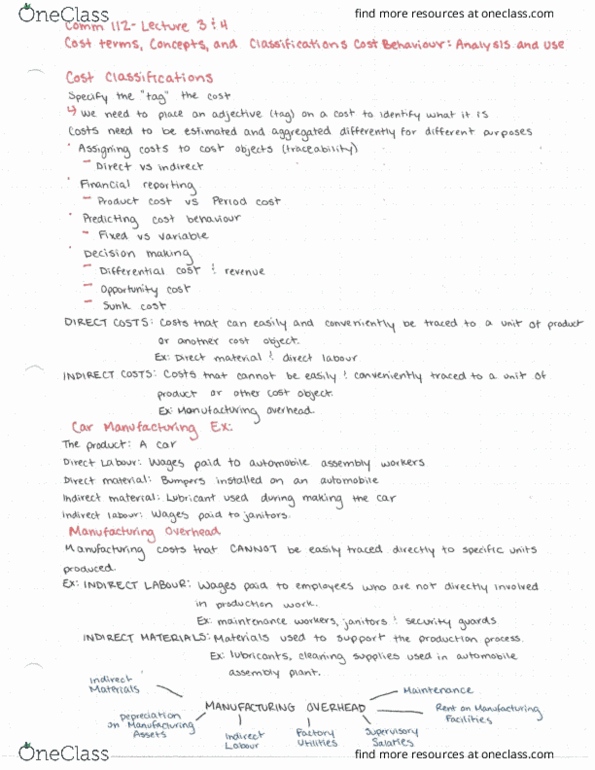 OneClass
find more resources at oneclass.com
Comm 112- Lecture 3 & 4
Cost terms, Concepts, and Classifications Cost Behaviour: Analysis and Use
Cost Classifications
Specify the "tag" the cost
↳ We need to place an adjective (tag) on a cost to identify what it is
Costs need to be estimated and aggregated differently for different purposes
· Assigning costs to cost objects (traceability)
- Direct vs indirect
· Financial reporting
- Product cost vs Period cost
· Predicting cost behaviour
- Fixed vs variable
· Decision making
- Differential cost & revenue
- Opportunity cost
- Sunk cost
DIRECT COSTS: Costs that can easily and conveniently be traced to a unit of product
or another cost object.
Ex: Direct material & direct labour
INDIRECT COSTS: Costs that cannot be easily & conveniently traced to a unit of
product or other cost object.
Ex: Manufacturing overhead.
Car Manufacturing Ex:
The product: A car
Direct Labour: Wages paid to automobile assembly workers
Direct material: Bumpers installed on an automobile
Indirect material: Lubricant used during making the car
Indirect labour: Wages paid to janitors.
Manufacturing Overhead
Manufacturing costs that CANNOT be easily traced directly to specific units
produced.
Ex: INDIRECT LABOUR: Wages paid to employees who are not directly involved
in production work.
Ex: maintenance workers, janitors & security guards
INDIRECT MATERIALS: Materials used to support the production process.
Ex: lubricants, cleaning supplies used in automobile
assembly plant.
Indirect
Materials
Maintenance
MANUFACTURING OVERHEAD
Rent on Manufacturing
Facilities
Depreciation
on Manufacturing
Assets
Indirect
Labour
Factory
Utilities
Supervisory
Salaries
OneClass
find more resources at oneclass.com